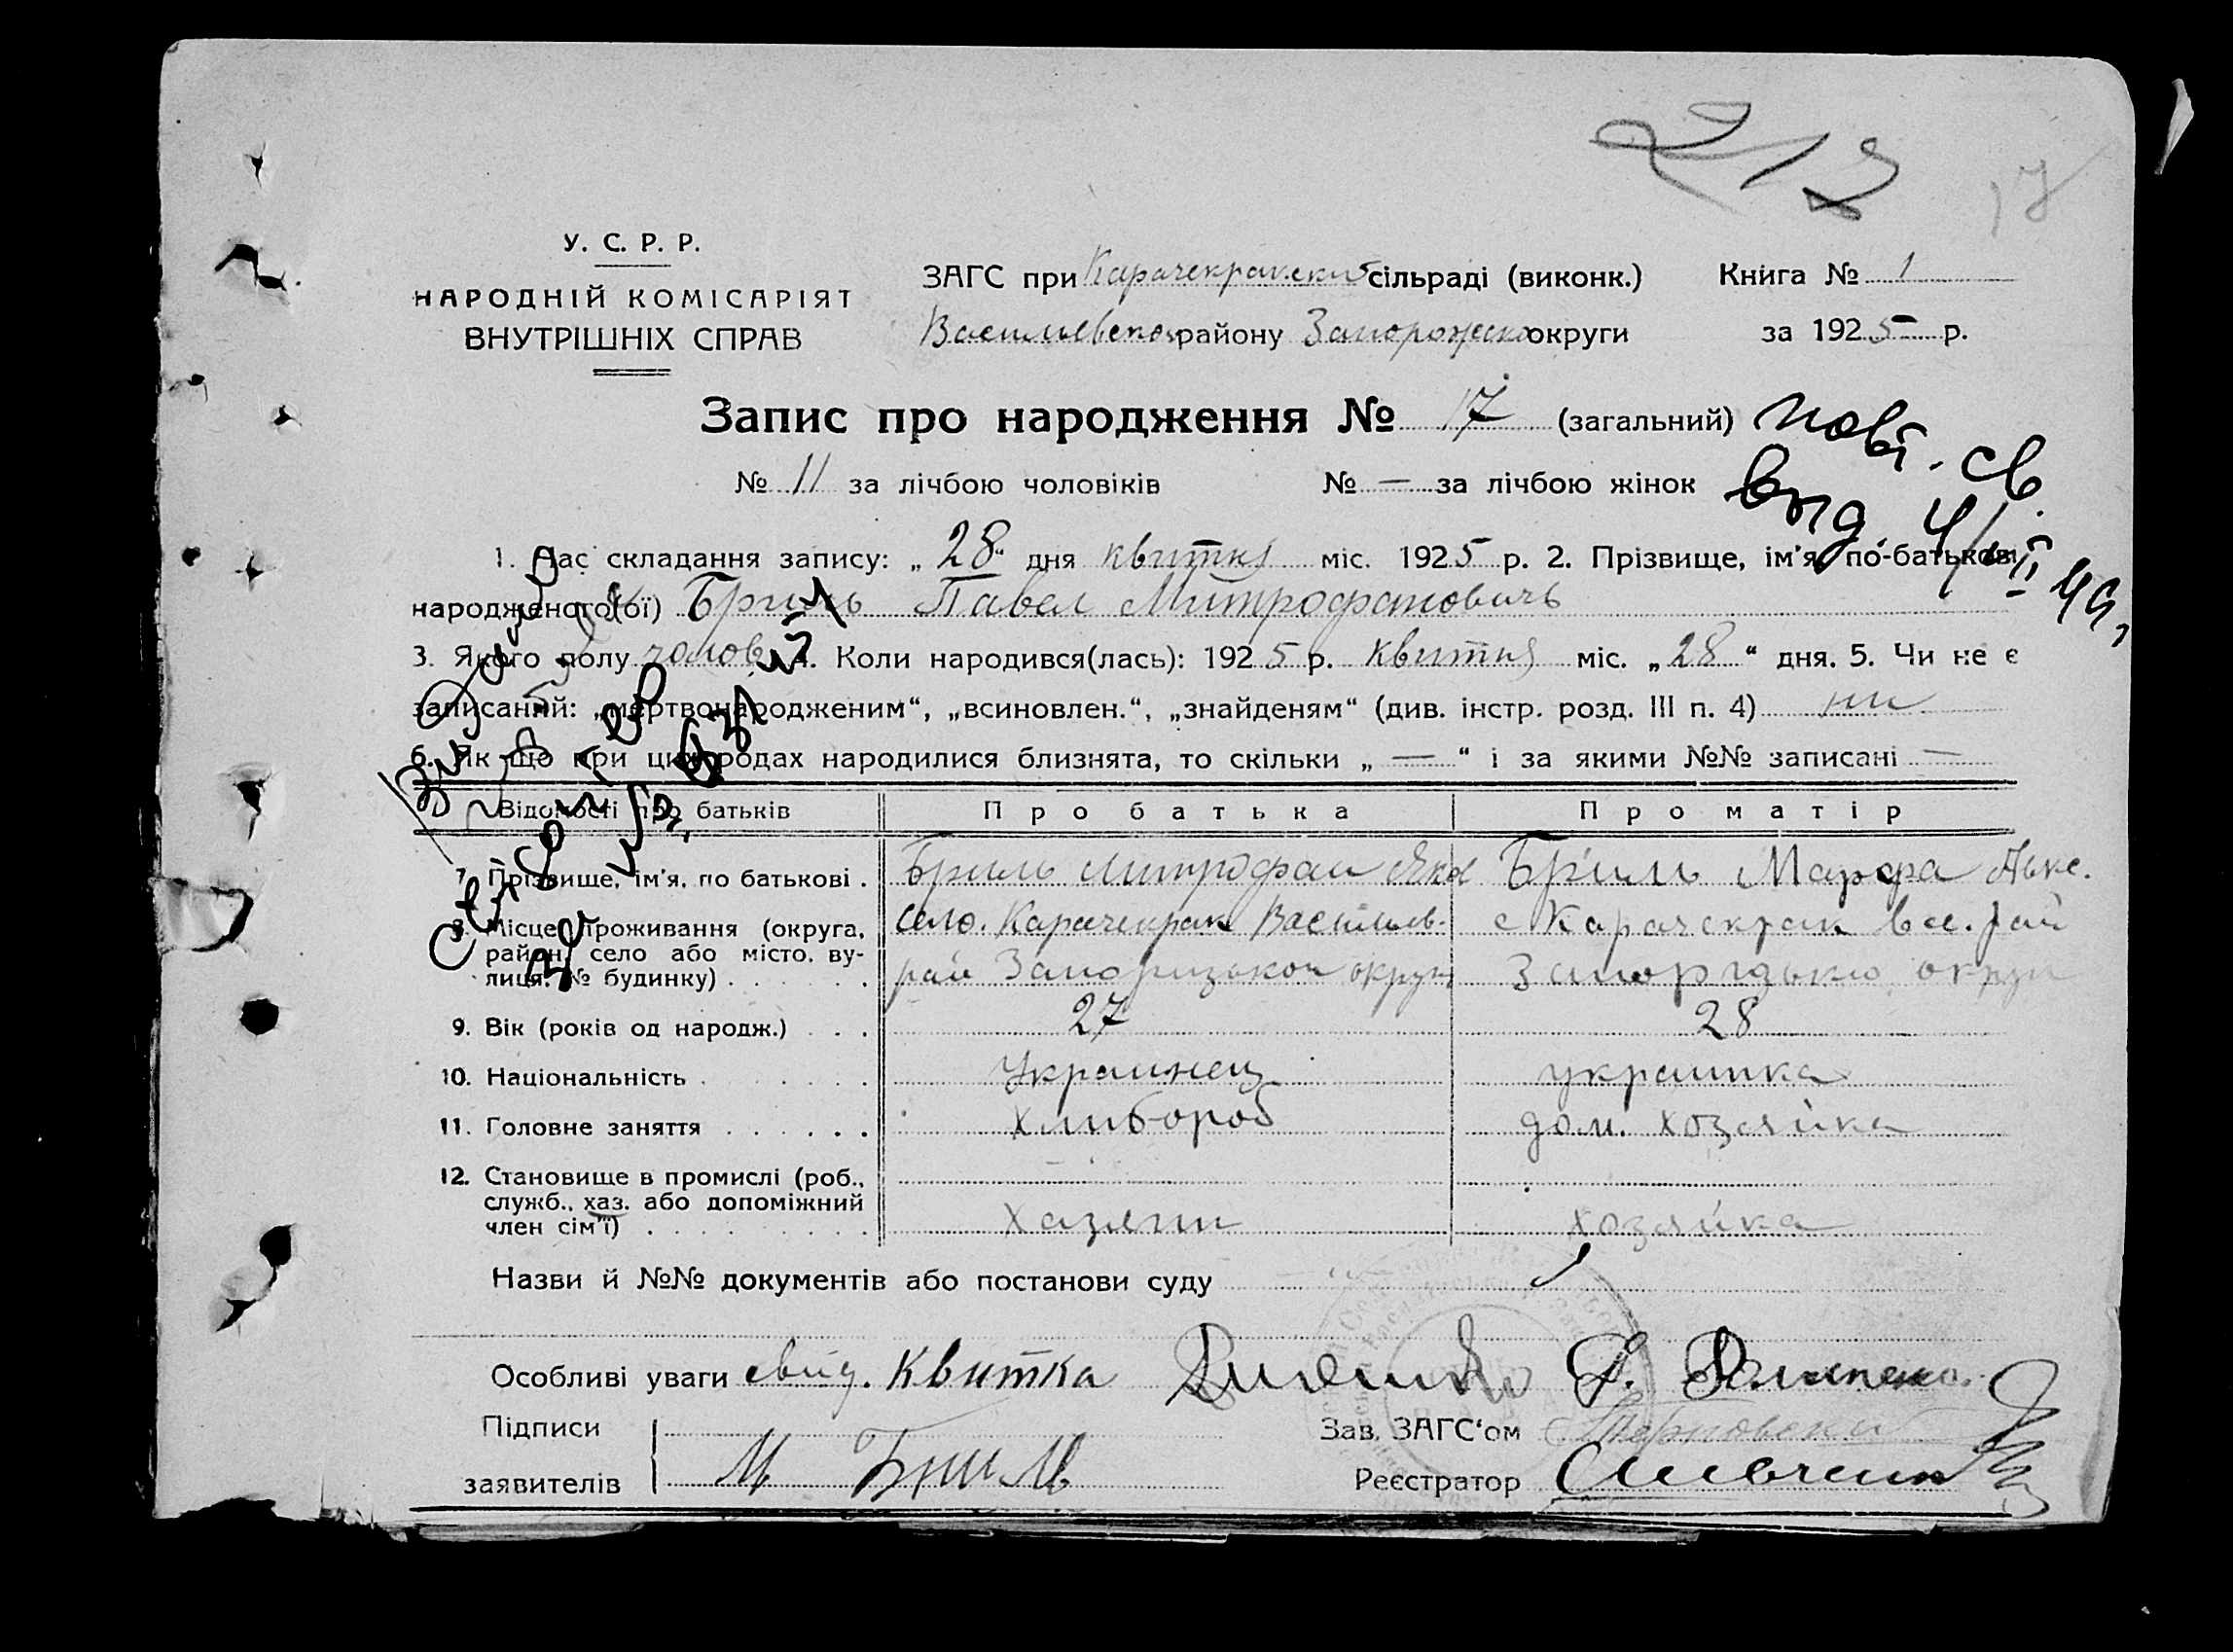 213
17
У. С. Р. Р.
НАРОДНІЙ КОМІСАРІЯТ
ВНУТРІШНІХ СПРАВ
ЗАГС при Карачекракский сільраді (виконк.) Книга № 1
Васильевского району Запорожской округи за 1925 р.
Запис про народження № 17 (загальний)
№ 11 за лічбою чоловіків № — за лічбою жінок
повт. св.
выд. 4/II 49,
1. Час складання запису: „28“ дня квитня міс. 1925 р. 2. Прізвище, ім'я, по-батькові
народженого(ої) Бриль Павел Митрофановичь
3. Якого полу чолов. 4. Коли народився(лась): 1925 р. квитня міс. „28“ дня. 5. Чи не є
записаний: „мертвонародженим“, „всиновлен.“, „знайденям“ (див. інстр. розд. III п. 4) ни
6. Як що при цих родах народилися близнята, то скільки „ — “ і за якими №№ записані —
Відомості про батьків Про батька Про матір
7. Прізвище, ім'я, по батькові . Бриль Митрофан Яков Бриль Марфа Авкс.
8. Місце проживання (округа, село. Карачекрак Васильв- с Карачекрак Вас. рай
район, село або місто, ву- рай Запоризькои округи Запоризько округи
лиця, № будинку) . . . . .
9. Вік (років од народж.) . . . 27 28
10. Національність . . . . . . Украинец украинка
11. Головне заняття . . . . . . хлибороб дом. хозяйка
12. Становище в промислі (роб.,
служб., хаз. або допоміжний
член сім'ї) . . . . . . . . хазяин хозяйка
Назви й №№ документів або постанови суду
Особливі уваги свид. Квитка
Підписи Зав. ЗАГС'ом
заявителів М Бриль Реєстратор